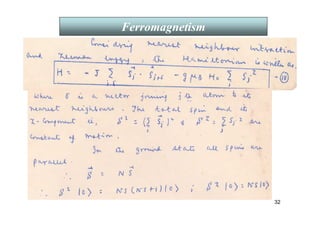 Ferromagnetism
Considering nearest neighbour interaction
and Zeeman energy, the Hamiltonian is written as,
H = - J ∑ S⃗j · S⃗j+δ - g μB H₀ ∑ Sjᶻ -
where δ is a vector joining jth atom to its
nearest neighbours. The total spin and its
Z-component ie,
constant of motion.
In the ground state all spins are
parallel.
∴ S⃗ = N S⃗
∴ S² |0⟩ = NS (NS+1) |0⟩ ; Sᶻ |0⟩ = NS |0⟩
32